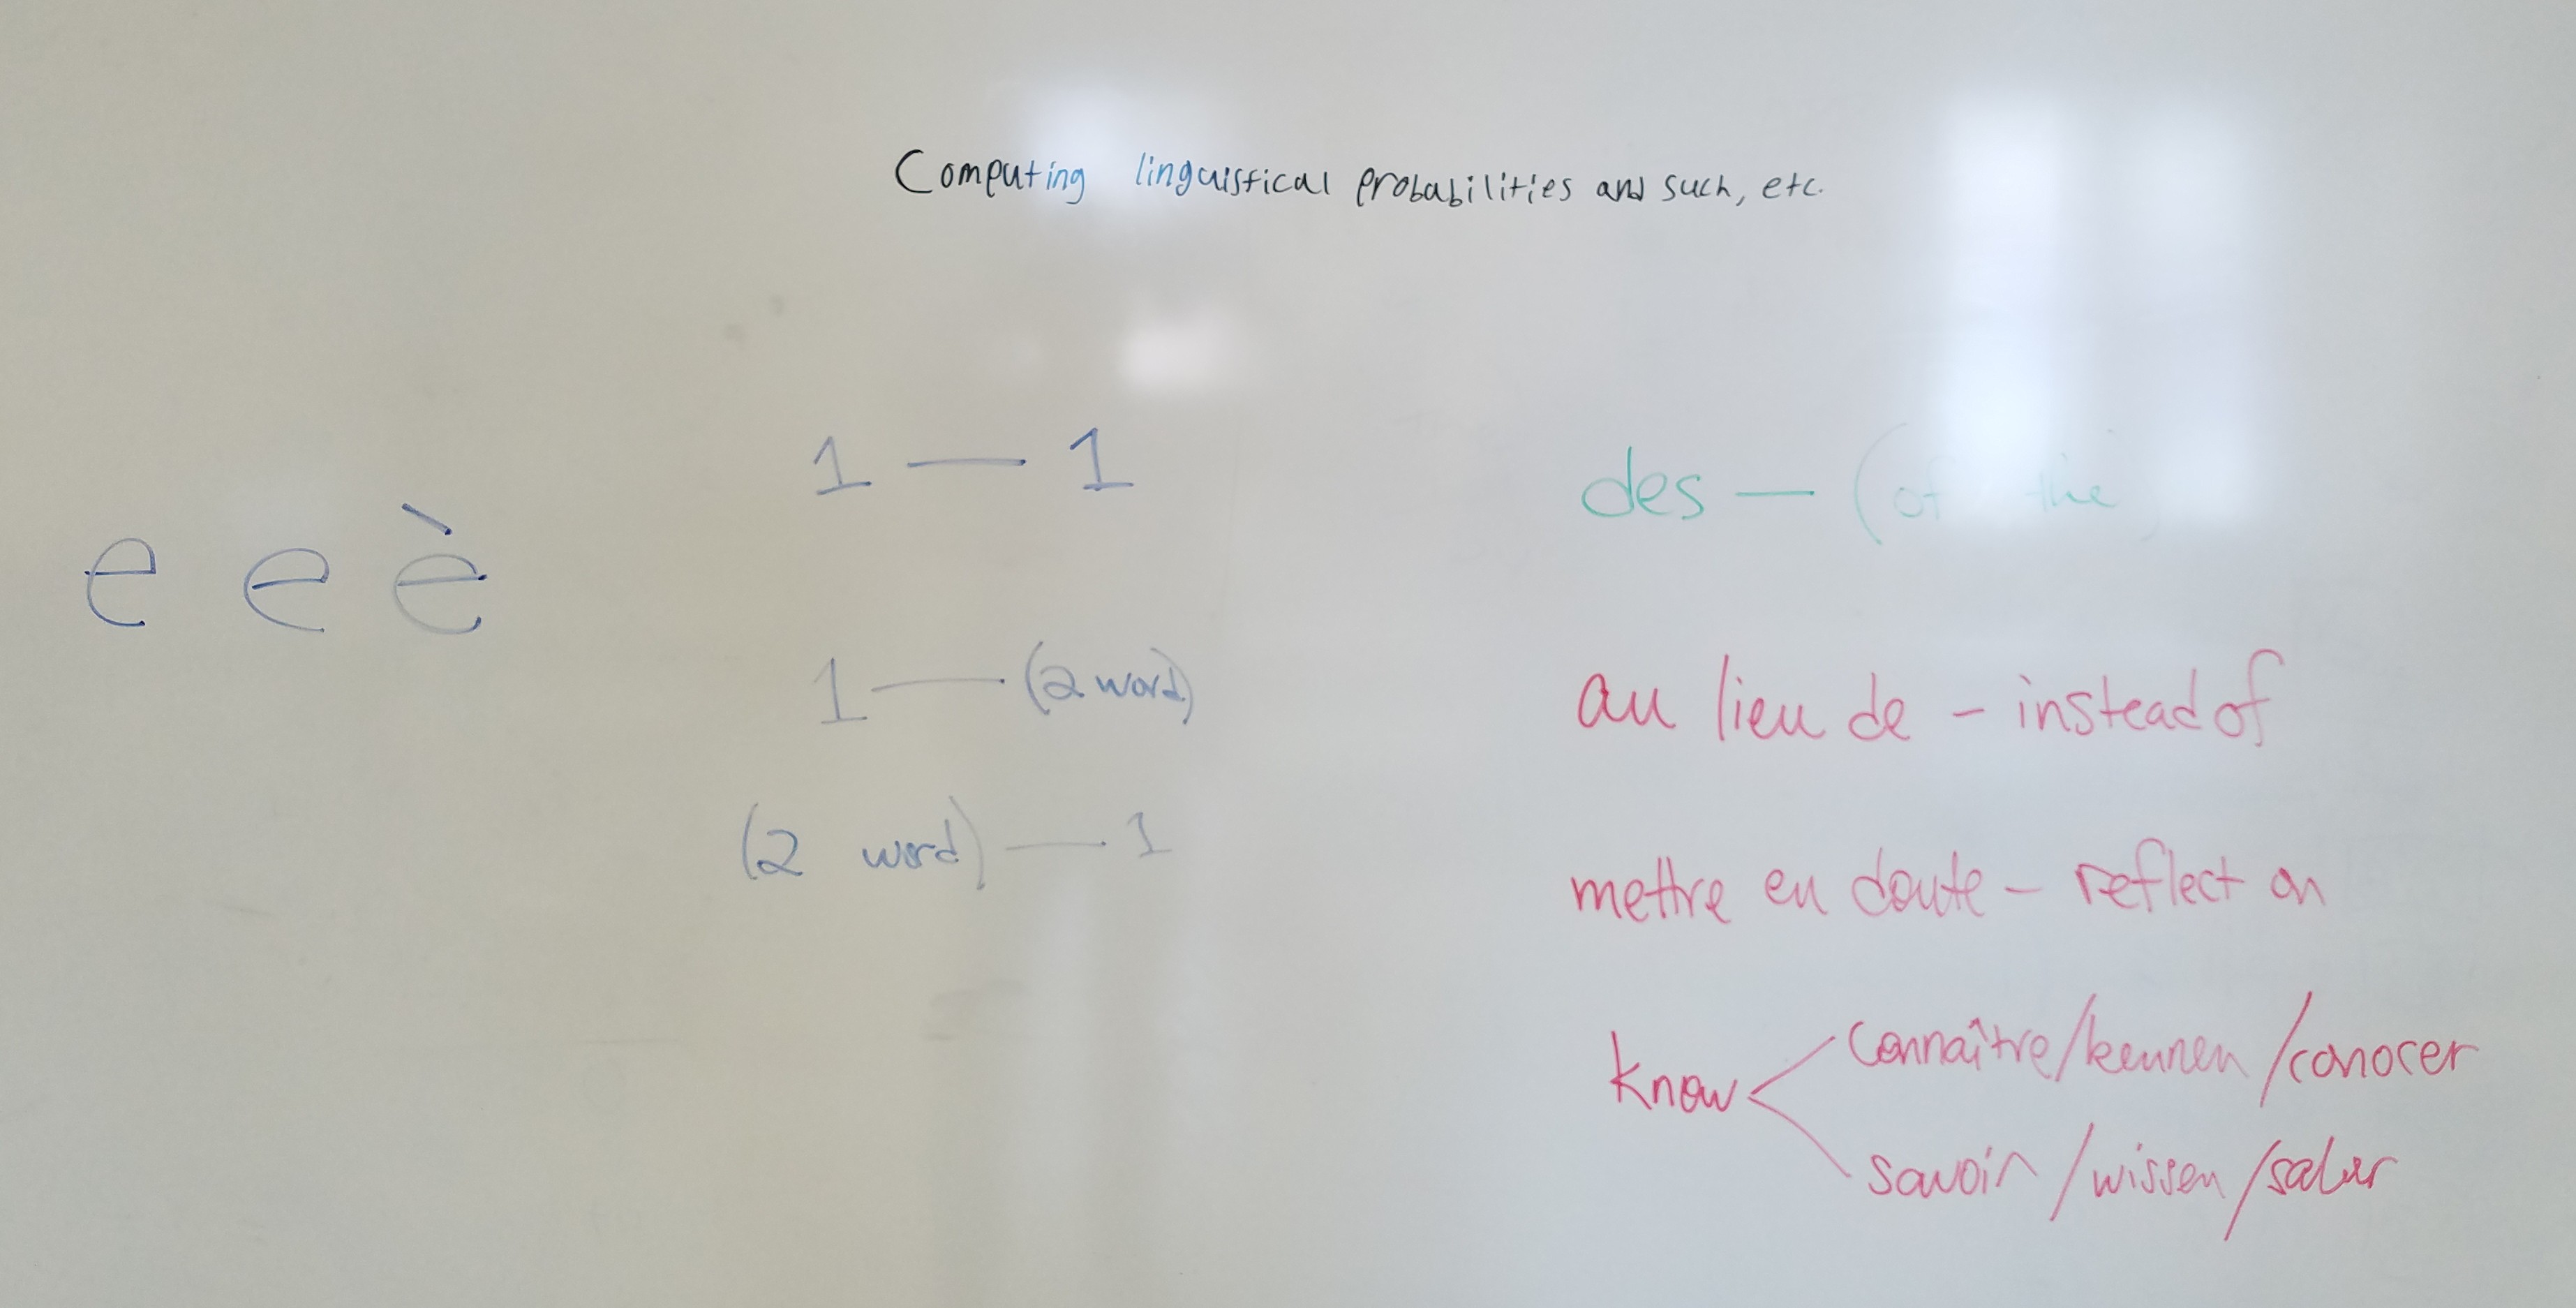 Computing linguistical probabilities and such, etc.
e e è
1 — 1
1 — (2 word)
(2 word) — 1
des — (of the)
au lieu de - instead of
mettre en doute - reflect on
know < connaître/kennen/conocer
savoir/wissen/saber